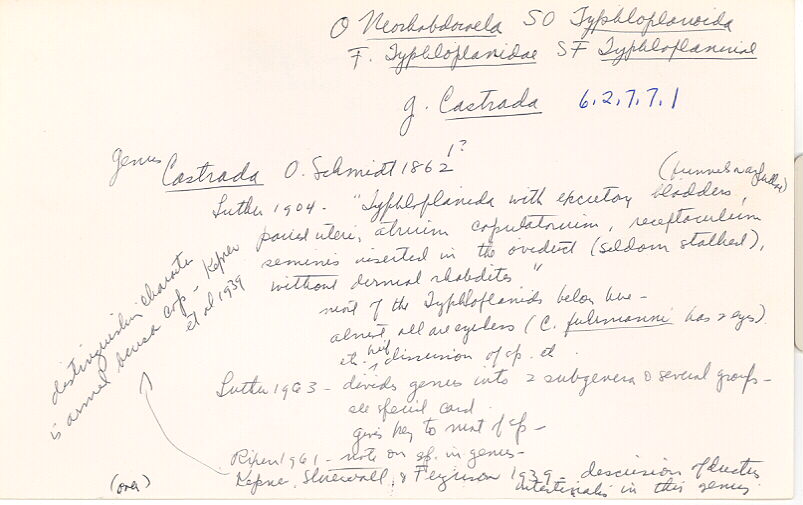 O Neorhabdocoela SO Typhloplanoida
F. Typhloplanidae SF Typhloplaninae
g. Castrada 6.2.7.7.1
genus Castrada O. Schmidt 1862 1?
Luther 1904 - "Typhloplanida with excretory bladders,
paired uteri, atrium copulatorium, receptaculum
seminis inserted in the oviduct (seldom stalked),
without dermal rhabdites"
most of the Typhloplanids below have -
almost all are eyeless (C. fuhrmanni has 2 eyes).
etc. brief discussion of sp. etc.
Luther 1963 - divides genus into 2 subgenera & several groups -
see special card
gives key to most of sp -
distinguishing character
is armed bursa cop - Kepner
et al 1939
Rixen 1961 - note on sp. in genus -
Kepner, Stirewalt, & Ferguson 1939 - discussion of ductus
intestinalis in this genus
(over)